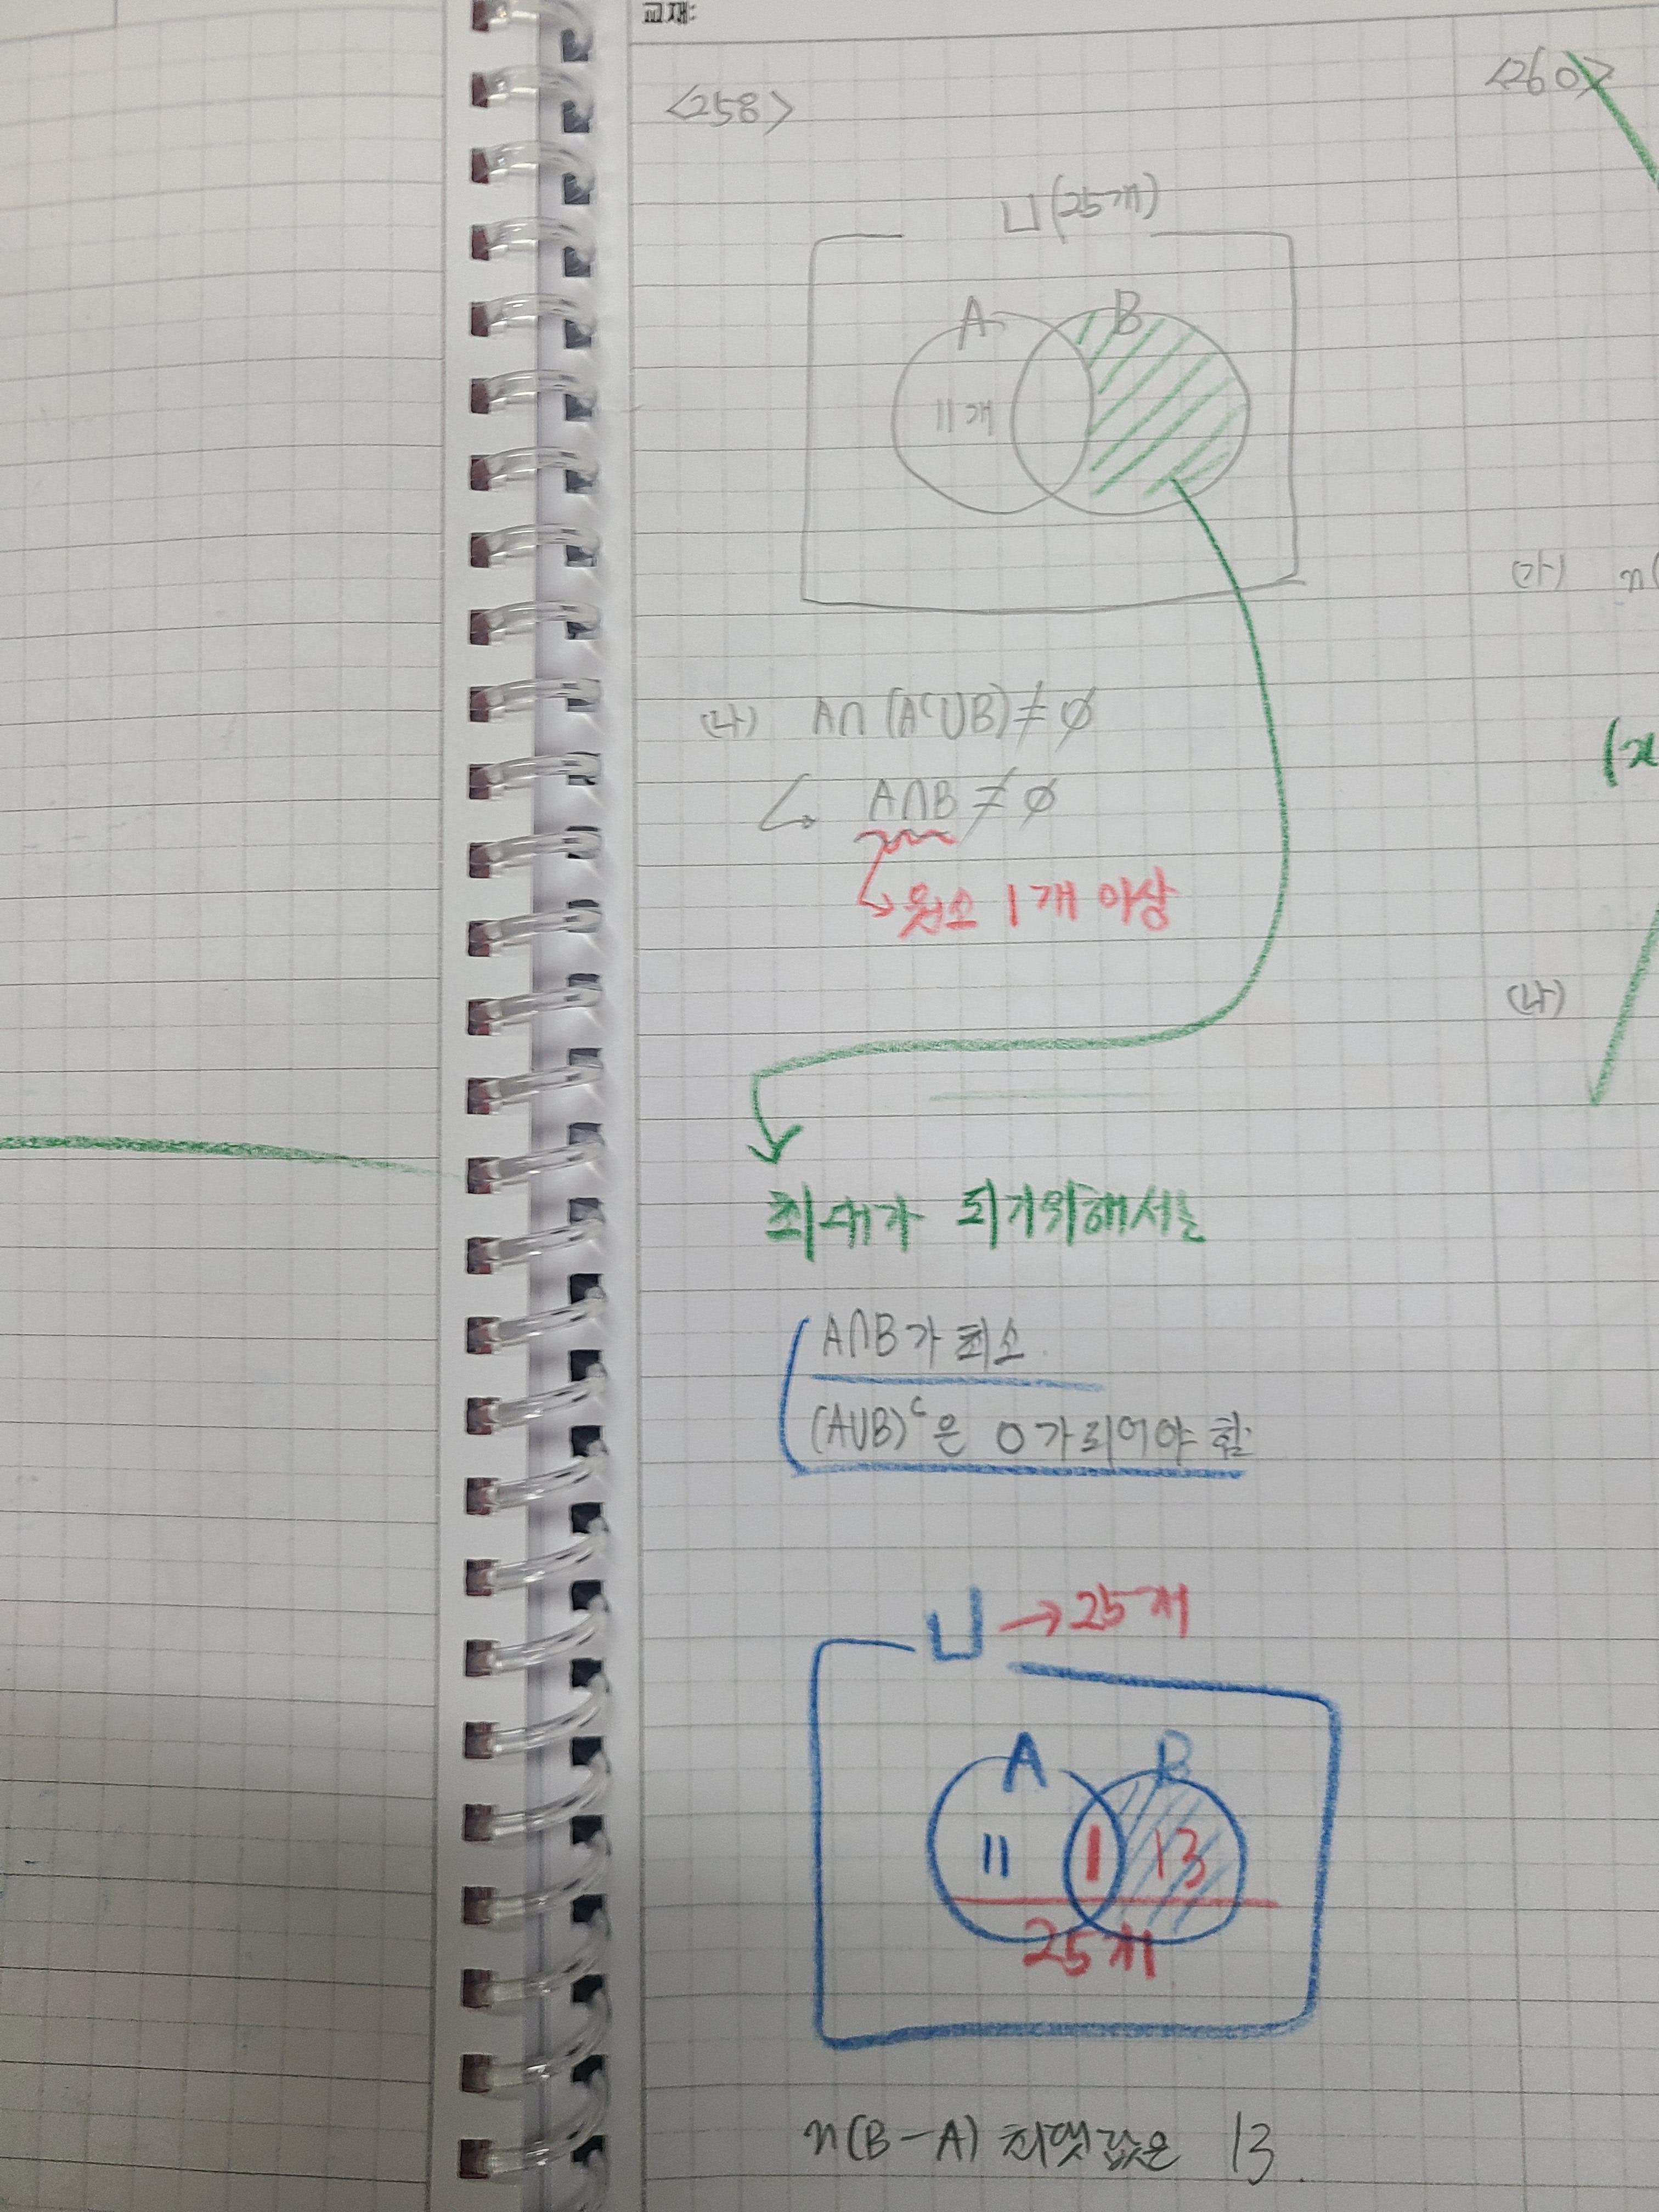 교재:
<258>
U(25개)
A B
11개
(나) A∩(Aᶜ∪B)≠∅
A∩B≠∅
원소 1개 이상
최대가 되기위해서는
A∩B가 최소.
(A∪B)ᶜ은 0가 되어야 함
U→25개
A B
11 1 13
25개
n(B-A) 최댓값은 13.
<260>
(가) n(
(x
(나)